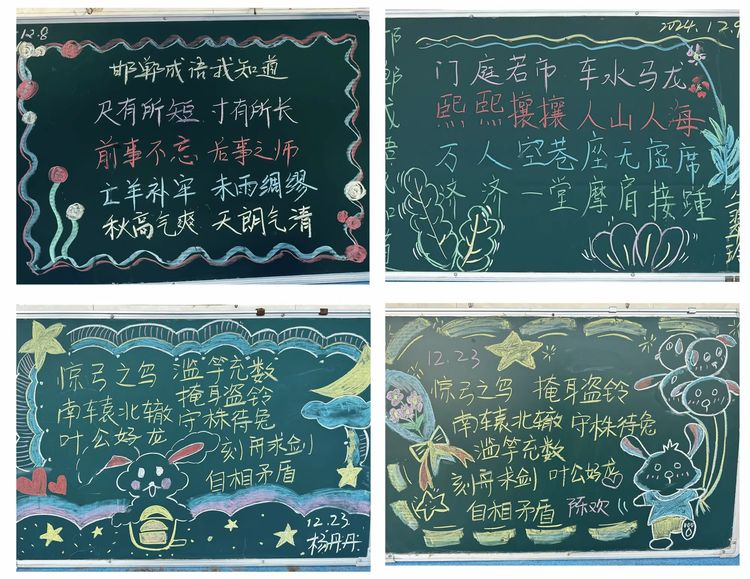 12.8
邯郸成语我知道
尺有所短 寸有所长
前事不忘 后事之师
亡羊补牢 未雨绸缪
秋高气爽 天朗气清
2024.12.9
邯郸成语我知道
门庭若市 车水马龙
熙熙攘攘 人山人海
万人空巷 座无虚席
济济一堂 摩肩接踵
惊弓之鸟 滥竽充数
掩耳盗铃
南辕北辙 守株待兔
叶公好龙
刻舟求剑
自相矛盾
12.23
杨丹丹
12.23
惊弓之鸟 掩耳盗铃
南辕北辙 守株待兔
滥竽充数
刻舟求剑 叶公好龙
自相矛盾 陈欢